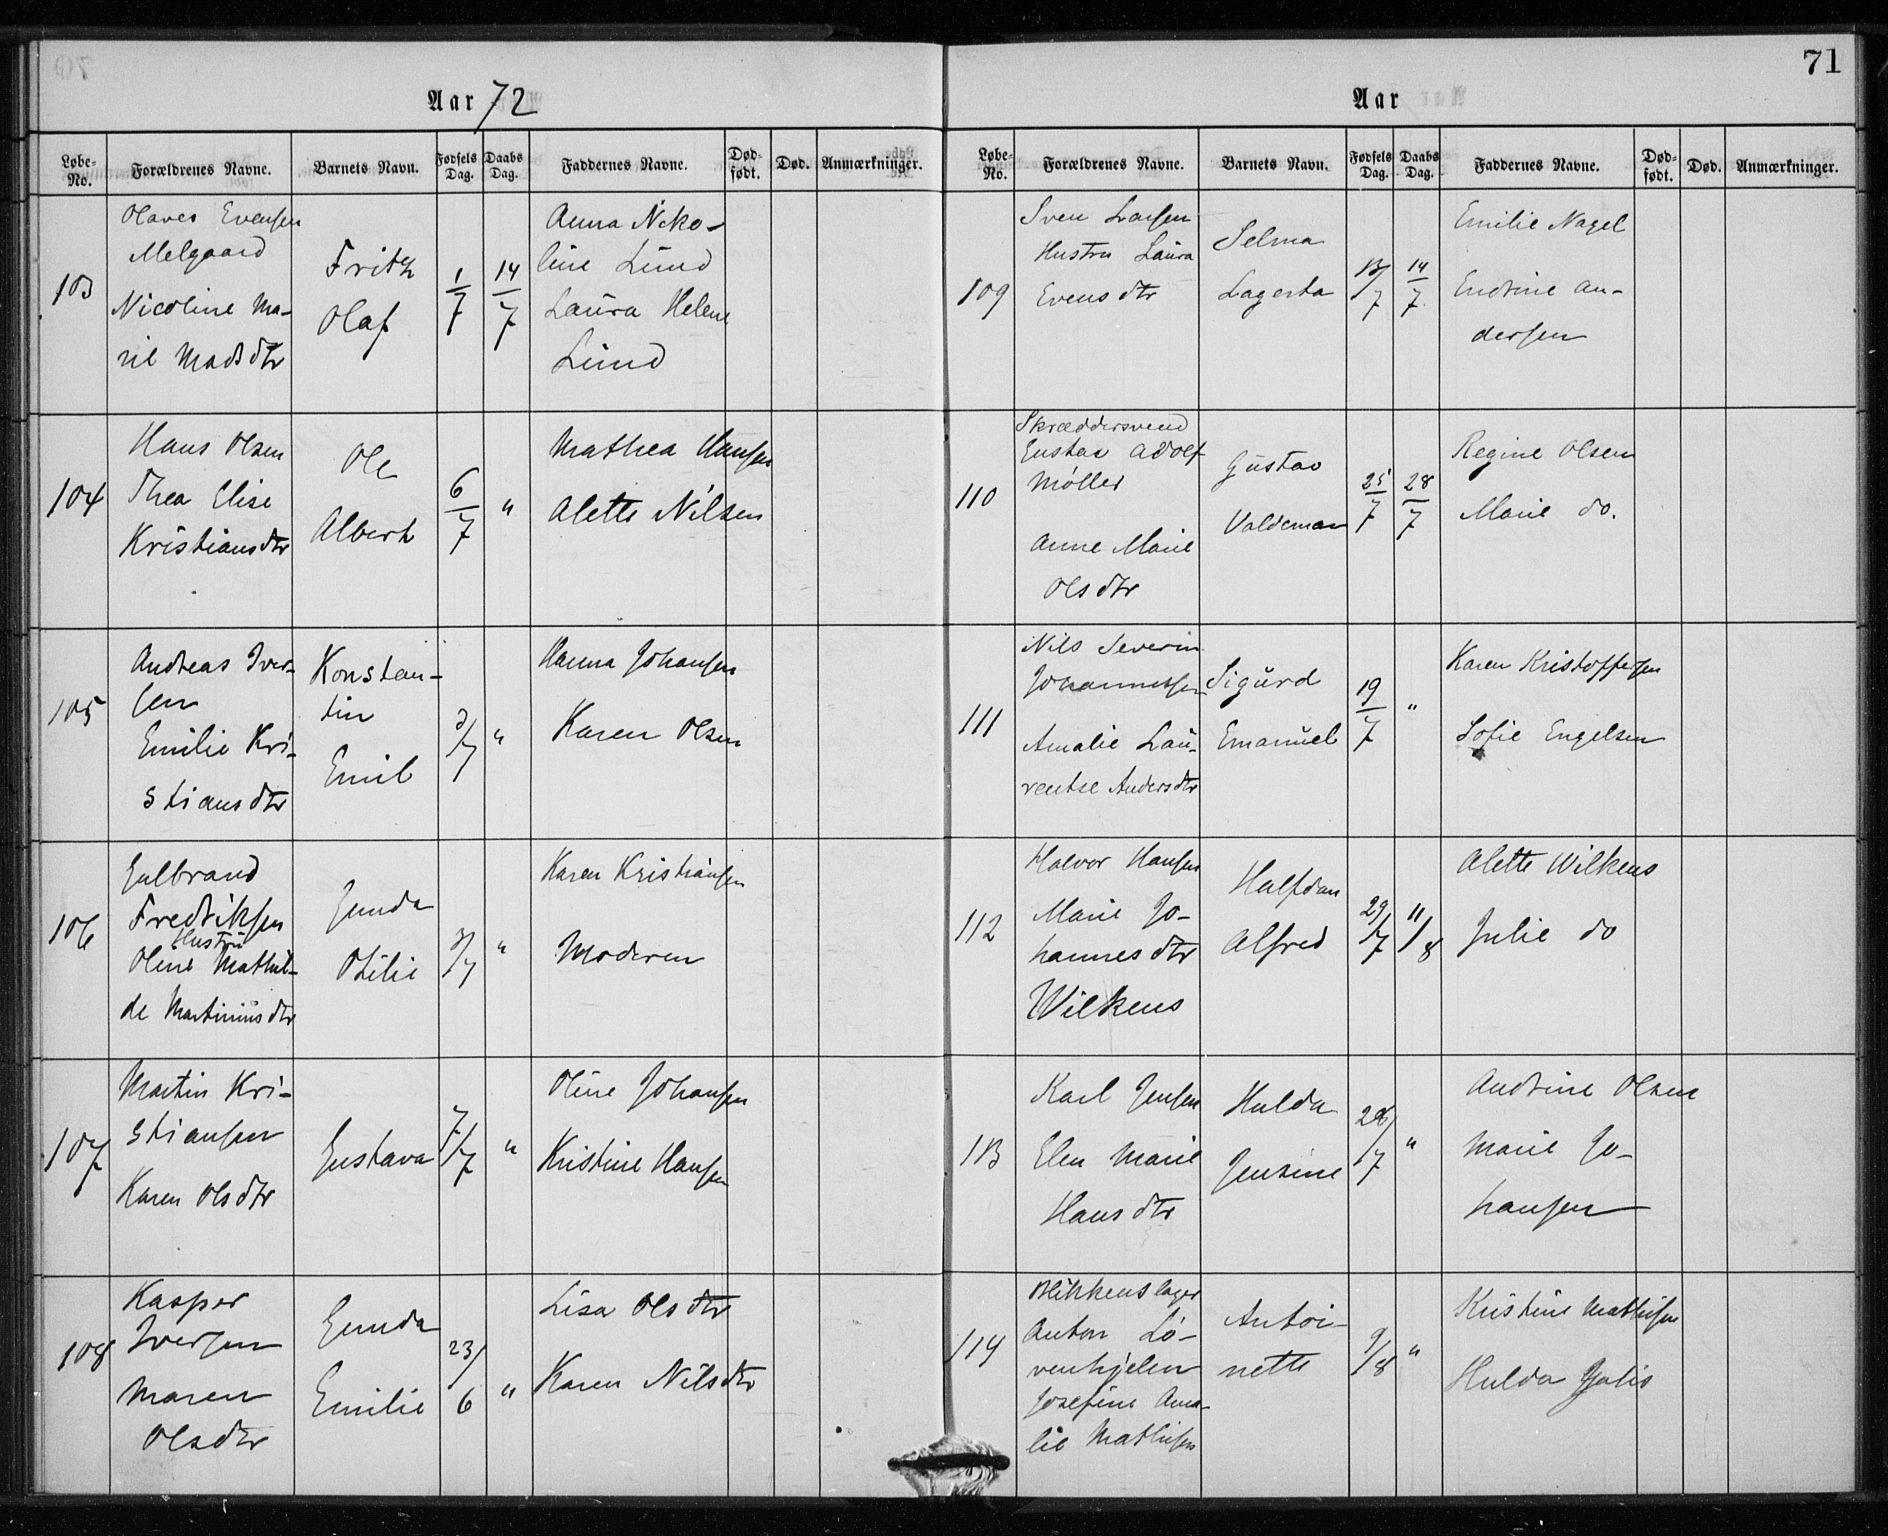 Aar 72
Løbe-No. Forældrenes Navne. Barnets Navn. Fødsels Dag. Daabs Dag. Faddernes Navne. Død-født. Død. Anmærkninger.
103
Olaves Evensen
Melgaard
Nicoline Ma-
rie Madsdtr
Fritz
Olaf
1/7
14/7
Anna Niko-
line Lund
Laura Helene
Lund
104
Hans Olsen
Thea Elise
Kristiansdtr
Ole
Albert
6/7
"
Mathea Hansen
Alette Nilsen
105
Andreas Iver-
sen
Emilie Kri-
stiansdtr
Konstan-
tin
Emil
3/7
"
Hanna Johansen
Karen Olsen
106
Gulbrand
Fredriksen
Hustru
Oline Mathil-
de Martiniusdtr
Gunda
Otilie
3/7
"
Karen Kristiansen
Moderen
107
Martin Kri-
stiansen
Karen Olsdtr
Gustava
7/7
"
Oline Johansen
Kristine Hansen
108
Kasper
Iversen
Maren
Olsdtr
Gunda
Emilie
23/6
"
Lisa Olsdtr
Karen Nilsdtr
71
Aar
Løbe-No. Forældrenes Navne. Barnets Navn. Fødsels Dag. Daabs Dag. Faddernes Navne. Død-født. Død. Anmærkninger.
109
Sven Larsen
Hustru Laura
Evensdtr
Selma
Lagerta
13/7
14/7
Emilie Nagel
Endrine An-
dersen
110
Skræddersvend
Gustav Adolf
Møller
Anne Marie
Olsdtr
Gustav
Valdemar
25/7
28/7
Regine Olsen
Marie do.
111
Nils Severin
Johannessen
Amalie Lau-
rentse Andersdtr
Sigurd
Emanuel
19/7
"
Karen Kristoffersen
Sofie Engelsen
112
Halvor Hansen
Marie Jo-
hannesdtr
Wilkens
Halfdan
Alfred
29/7
11/8
Alette Wilkens
Julie do
113
Karl Jensen
Elen Marie
Hansdtr
Hulda
Jensine
28/7
"
Andrine Olsen
Marie Jo-
hansen
114
Blikkenslager
Anton Lö-
venhjelm
Josefine Ama-
lie Mathisen
Antoi-
nette
9/8
"
Kristine Mathisen
Hulda